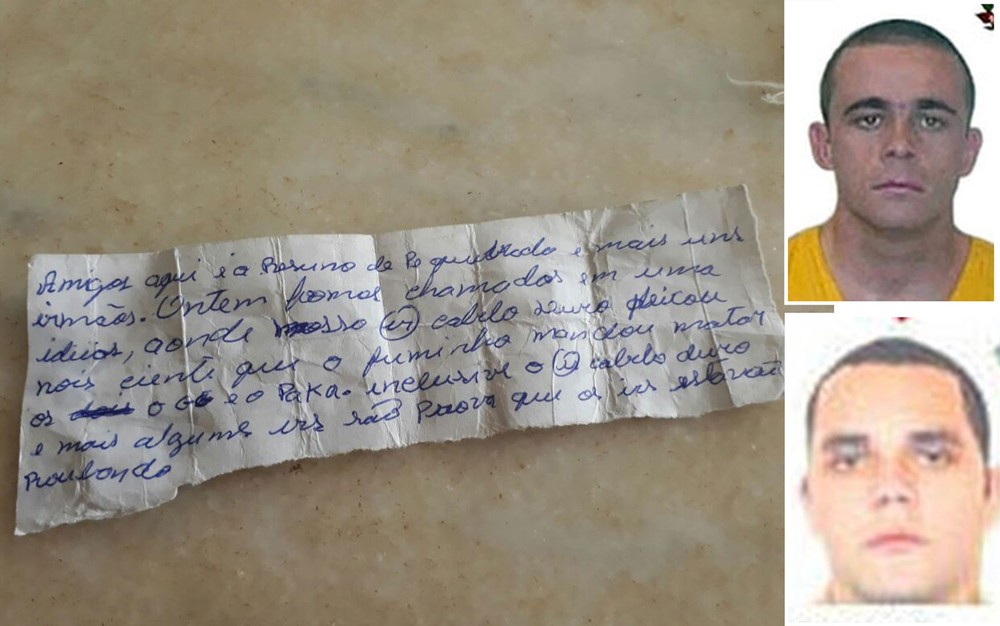 Amigos aqui é o Resumo de Pe quebrado e mais uns
irmãos. Ontem fomos chamados em uma
ideia, aonde nosso (ir) cabelo duro deixou
nois ciente que o fuminho mandou matar
os o GG e o PAKA. inclusive o (ir) cabelo duro
e mais alguns irs são prova que os irs estavão
Roubando